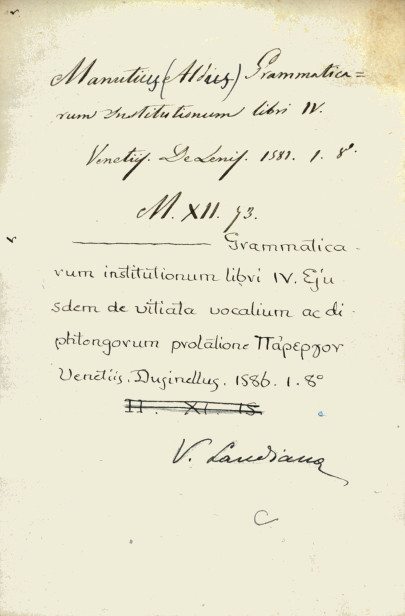 Manutius (Aldus) Grammatica=
rum Institutionum libri IV.
Venetiis. De Lenis. 1581. 1. 8°.
M. XII. 73.
Grammatica-
rum institutionum libri IV. Eju
sdem de vitiata vocalium ac di-
phtongorum prolatione Πάρεργον
Venetiis. Duginellus. 1586. 1. 8°
II. XI. 15.
V. Landiana
C